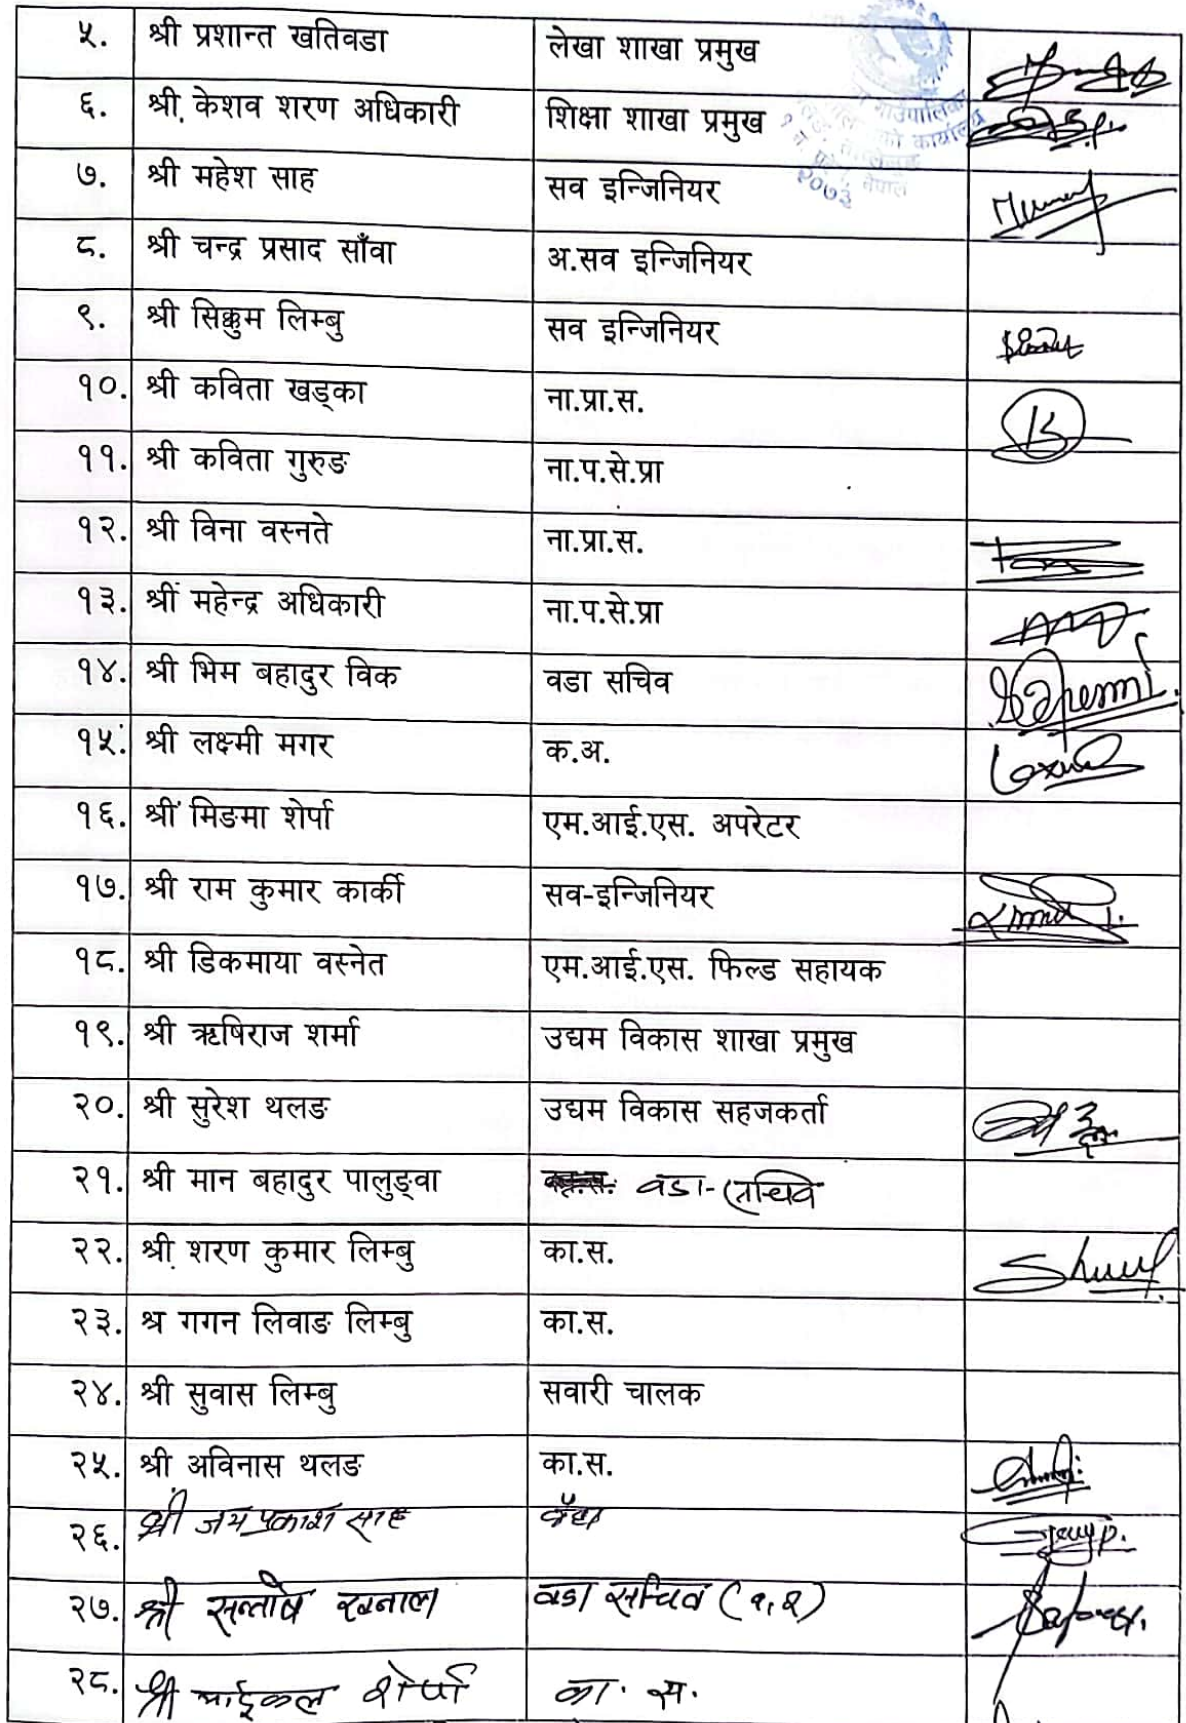 ५. श्री प्रशान्त खतिवडा लेखा शाखा प्रमुख
६. श्री केशव शरण अधिकारी शिक्षा शाखा प्रमुख
७. श्री महेश साह सव इन्जिनियर
२०७३ नेपाल
८. श्री चन्द्र प्रसाद साँवा अ.सव इन्जिनियर
९. श्री सिक्कुम लिम्बु सव इन्जिनियर
१०. श्री कविता खड्का ना.प्रा.स.
११. श्री कविता गुरुङ ना.प.से.प्रा
१२. श्री विना वस्नते ना.प्रा.स.
१३. श्री महेन्द्र अधिकारी ना.प.से.प्रा
१४. श्री भिम बहादुर विक वडा सचिव
१५. श्री लक्ष्मी मगर क.अ.
१६. श्री मिङमा शेर्पा एम.आई.एस. अपरेटर
१७. श्री राम कुमार कार्की सव-इन्जिनियर
१८. श्री डिकमाया वस्नेत एम.आई.एस. फिल्ड सहायक
१९. श्री ऋषिराज शर्मा उद्यम विकास शाखा प्रमुख
२०. श्री सुरेश थलङ उद्यम विकास सहजकर्ता
२१. श्री मान बहादुर पालुङ्वा वडा-सचिव
२२. श्री शरण कुमार लिम्बु का.स.
२३. श्र गगन लिवाङ लिम्बु का.स.
२४. श्री सुवास लिम्बु सवारी चालक
२५. श्री अविनास थलङ का.स.
२६. श्री जय प्रकाश साह
२७. श्री सन्तोष खनाल वडा सचिव (१,२)
२८. श्री माईकल शेर्पा का. स.